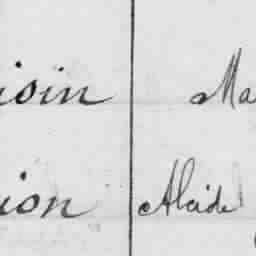 isin Ma
ion Alcide